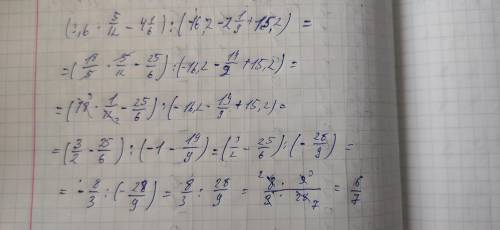 (3,6 · 5/12 - 4 1/6) : (-16,2 - 2 1/9 + 15,2) =
= (18/5 · 5/12 - 25/6) : (-16,2 - 19/9 + 15,2) =
= (18 · 1/12 - 25/6) : (-16,2 - 19/9 + 15,2) =
= (3/2 - 25/6) : (-1 - 19/9) = (3/2 - 25/6) : (-28/9) =
= -8/3 : (-28/9) = 8/3 : 28/9 = = 6/7